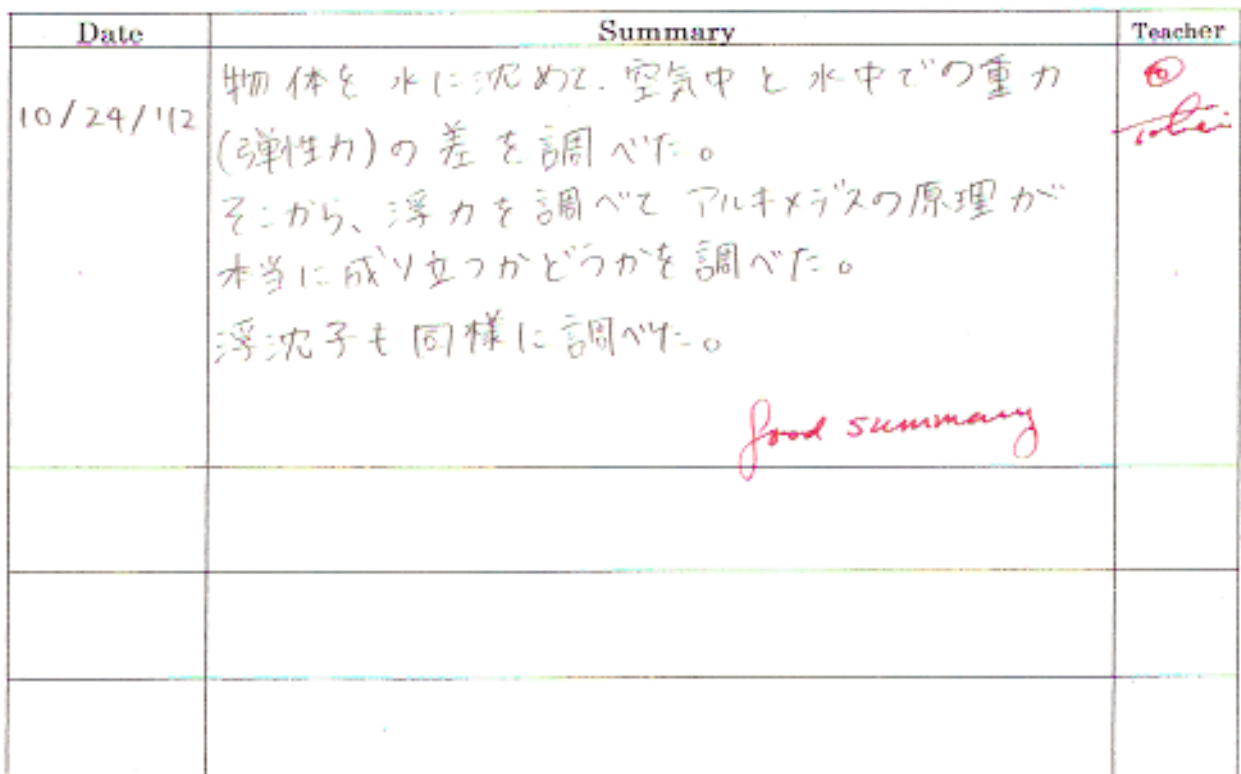 Date Summary Teacher
10/24/'12
物体を水に沈めて、空気中と水中での重力
(弾性力)の差を調べた。
そこから、浮力を調べて アルキメデスの原理が
本当に成り立つかどうかを調べた。
浮沈子も同様に調べた。
Good summary